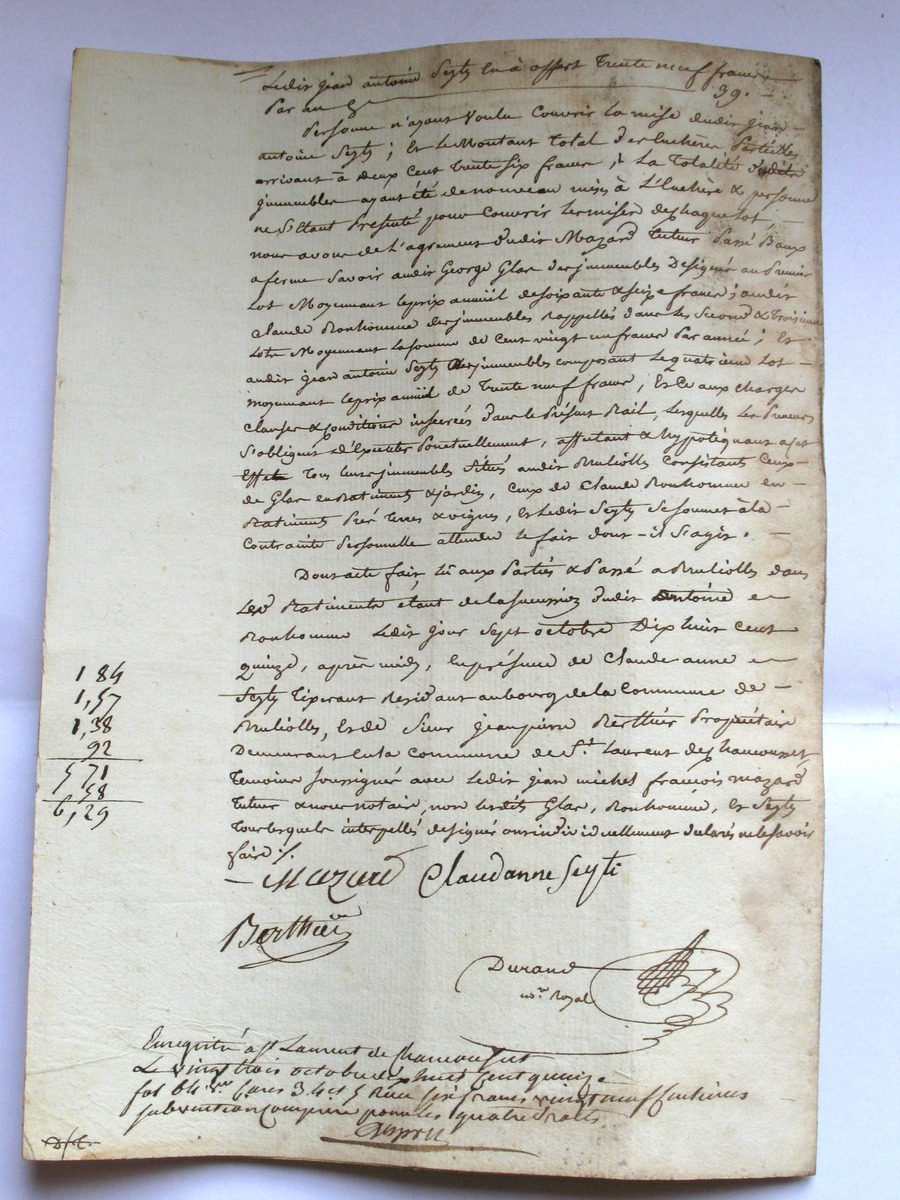 Ledit Jean antoine Seyty en à offert Trente neuf francs
Par an 39. —
Personne n'ayant voulu Couvrir la mise dudit Jean
antoine Seyty; Et Le Montant total des Enchères Partielles
arrivant à deux Cent Trente Six francs, & La Totalité desdits
jmmeubles ayant été de nouveau mise à L'Enchère & personne
ne S'Etant Présenté pour Couvrir Les mises de Chaque Lot —
nous avons de L'agrément dudit Mazard tuteur Passé Baux
a ferme Savoir audit George Glas des jmmeubles Désignés au Premier
Lot Moyennant le prix annuel de soixante & seize francs; audit
Claude Bonhomme des jmmeubles rappellés dans les Second & Troisieme
Lots Moyennant la somme de Cent vingt un francs Par année; Et
audit Jean antoine Seyty des jmmeubles composant le quatrieme Lot —
moyennant le prix annuel de Trente neuf francs, Et Ce aux Charges
Clauses & Conditions inserées dans le Présent Bail, Lesquelles Les Preneurs
S'obligent d'Exécuter Ponctuellement, affectant & hypotéquant a cet
Effet Tous leurs jmmeubles Situés audit Bruliolles Consistants Ceux
de Glas en Batiments & jardin, Ceux de Claude Bonhomme en —
Batiments Pré Terres & vignes, Et Ledit Seyty Se Soumet à la —
Contrainte Personnelle attendu le fait dont - il S'agit.
Dont acte fait, lû aux Parties & Passé a Brulliolles dans
Les Batiments étant de la succession dudit antoine
Bonhomme Ledit Jour Sept octobre Dix huit Cent
quinze, après midy, En présence de Claude anne
Seyty Tisserant Résidant au bourg de la Commune de —
Brulliolles, Et de Sieur Jean pierre Berthier Propriétaire
Demeurant En la Commune de St. Laurent de Chamousset
Temoins Soussignés avec Ledit Jean michel françois mazard
tuteur & nous notaire, non Lesdits Glas, Bonhomme, Et Seyty
Lesquels interpellés de signer ont individuellement declaré ne le savoir
faire ./.
184
1,57
1,38
92
5 71
58
6,29
Mazard Claudanne Seyti
Berthier
Durand
nre. Royal
Enregistré a St Laurent de Chamousset
Le vingt trois octobre dix huit Cent quinze
fol 64 vo. Cases 3. 4 et 5 Reçu six francs vingt neuf Centimes
subvention Comprise pour les quatre droits